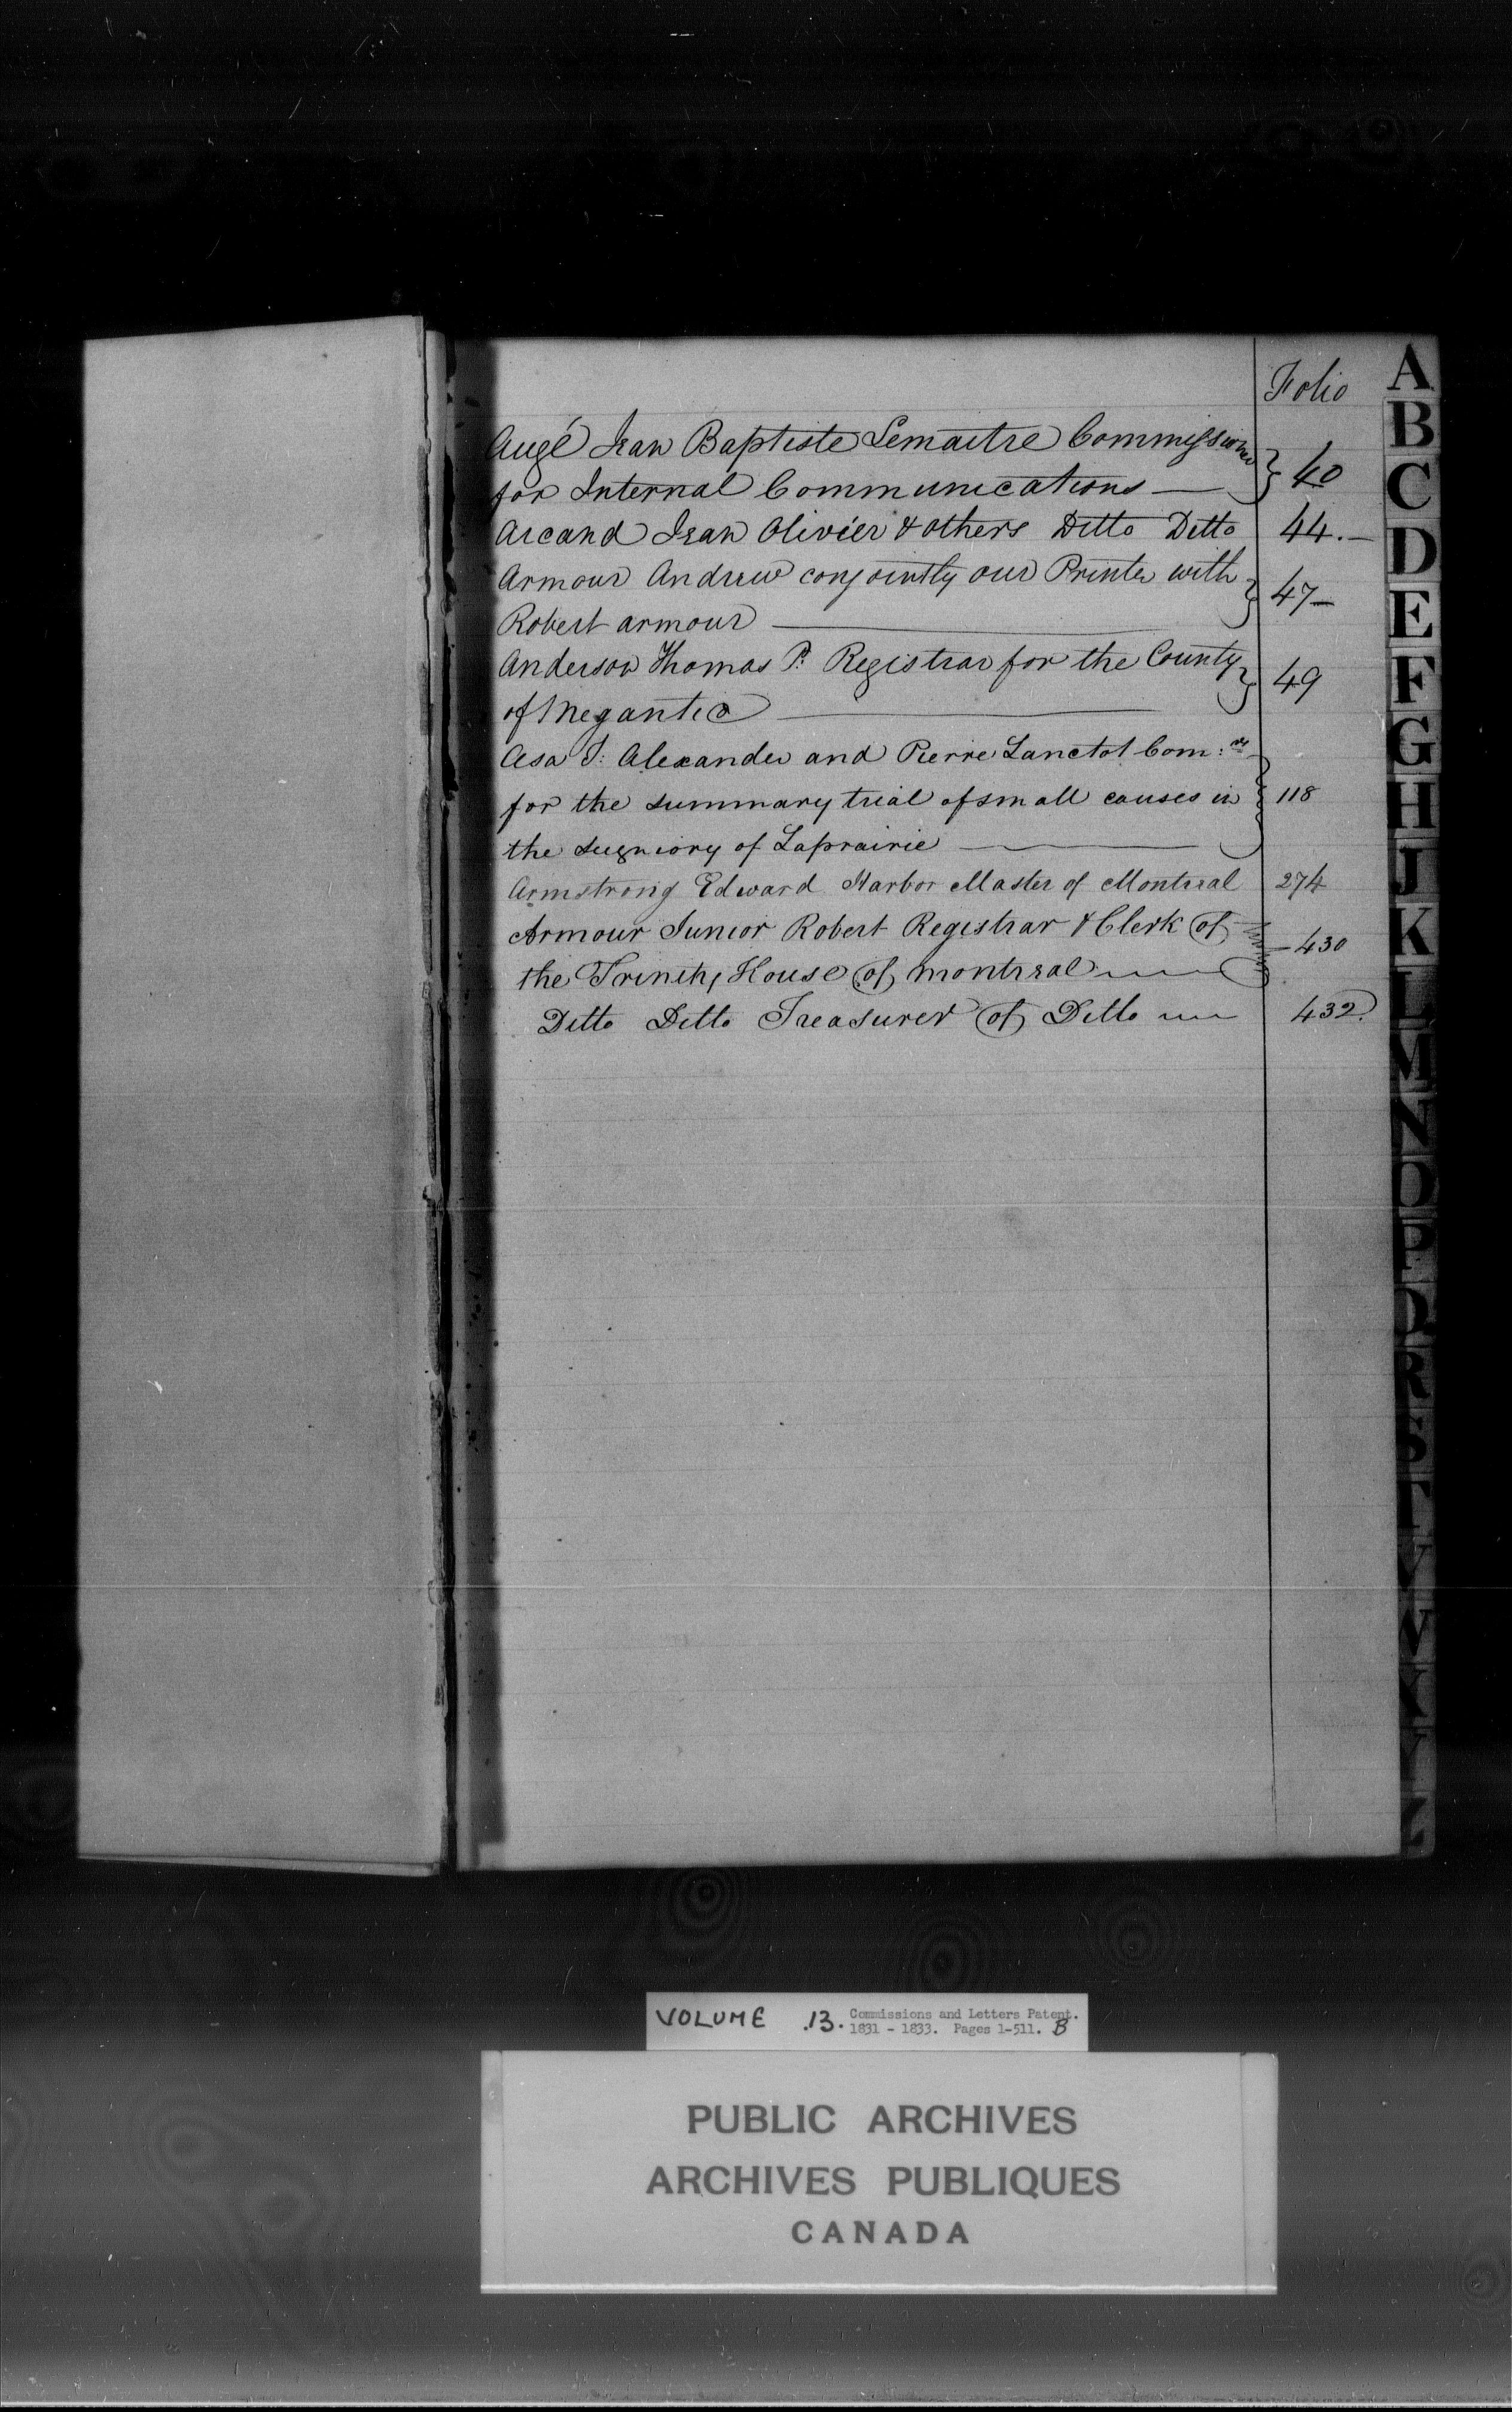 Folio
Augé Jean Baptiste Lemaitre Commissioner
for Internal Communications — 40
Arcand Jean Olivier & others Ditto Ditto 44.—
Armour Andrew conjointly our Printer with
Robert Armour — 47—
Anderson Thomas P: Registrar for the County
of Megantic — 49
Asa S: Alexander and Pierre Lanctot Com:rs
for the summary trial of small causes in 118
the Seigniory of Laprairie —
Armstrong Edward Harbor Master of Montreal 274
Armour Junior Robert Registrar & Clerk of
the Trinity House of Montreal — 430
Ditto Ditto Treasurer of Ditto — 432.
A
B
C
D
E
F
G
H
J
K
L
M
N
O
P
Q
R
S
T
V
W
X
Y
Z
VOLUME 13. Commissions and Letters Patent.
1831 - 1833. Pages 1-511. B
PUBLIC ARCHIVES
ARCHIVES PUBLIQUES
CANADA